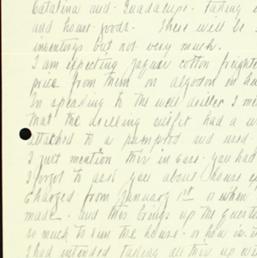 Catalina and Guadalupe. Taking
and house goods. There will be
inventory but not very much.
I am expecting Jaguar cotton freight
price from them on algodon in
In speaking to the well driller I
that the drilling outfit had a
attached to a pumprod and used
I just mention this in case you had
I forgot to ask you about house
charged from January 1st or when
made. and this brings up the question
so much to run the house. or how is
I had intended taking all this up